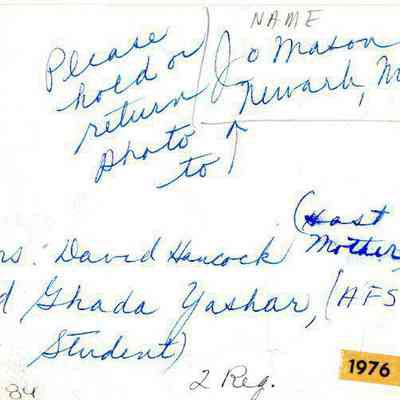 NAME
Please
hold or
return
photo
to
Jo Mason
Newark,
(Host
Mother)
rs. David Hancock
d Ghada Yashar, (AFS
Student)
1976
84
2 Reg.